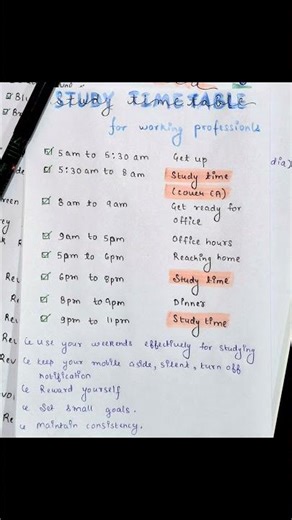 STUDY TIMETABLE
for working professionals
5am to 5:30 am Get up
5:30 am to 8 am Study time
(cover CA)
8am to 9am Get ready for
office
9am to 5pm Office hours
5pm to 6pm Reaching home
6pm to 8pm Study time
8pm to 9pm Dinner
9pm to 11pm Study time
use your weekends effectively for studying
keep your mobile aside, silent, turn off
notification
Reward yourself
Set small goals.
maintain consistency.